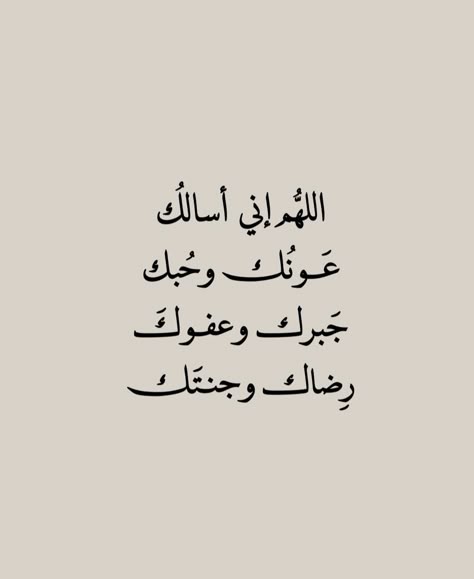 اللهُّم إني أسالكُ
عَـونُك وحُبك
جَبرك وعفـوكَ
رِضاك وجنـتَك